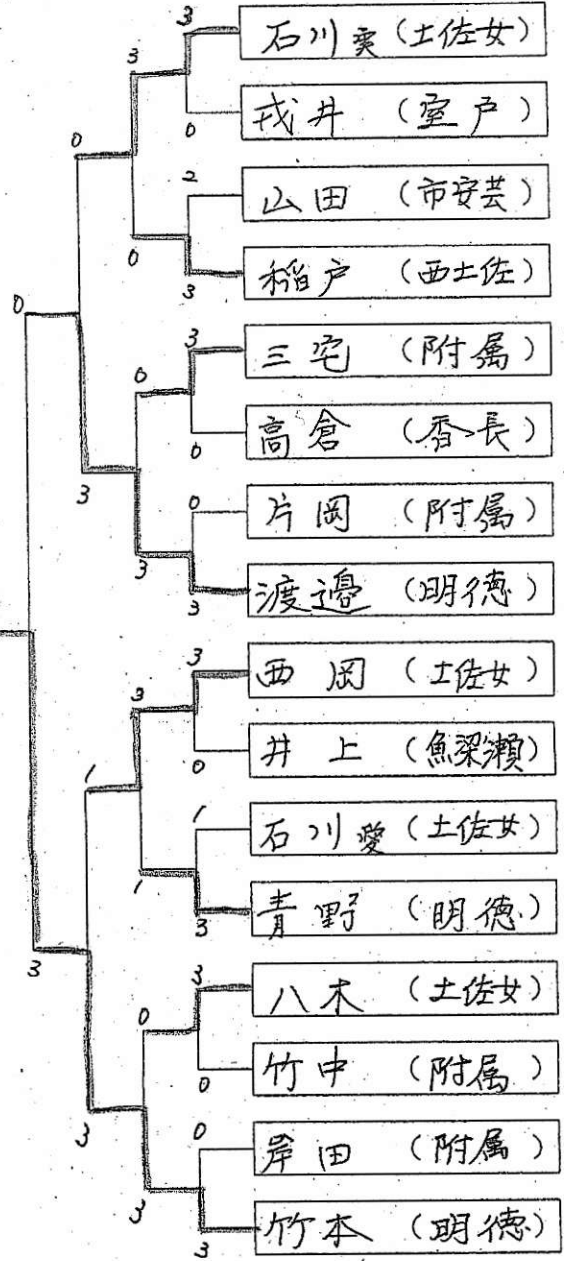 3
石川実 (土佐女)
3
戎井 (室戸)
0
0
2
山田 (市安芸)
0
稲戸 (西土佐)
3
0
3
三宅 (附属)
0
高倉 (香長)
0
3
0
片岡 (附属)
3
渡邉 (明徳)
3
3
西岡 (土佐女)
3
井上 (魚梁瀬)
0
1
1
石川愛 (土佐女)
1
青野 (明徳)
3
3
3
八木 (土佐女)
0
竹中 (附属)
0
3
0
岸田 (附属)
3
竹本 (明徳)
3